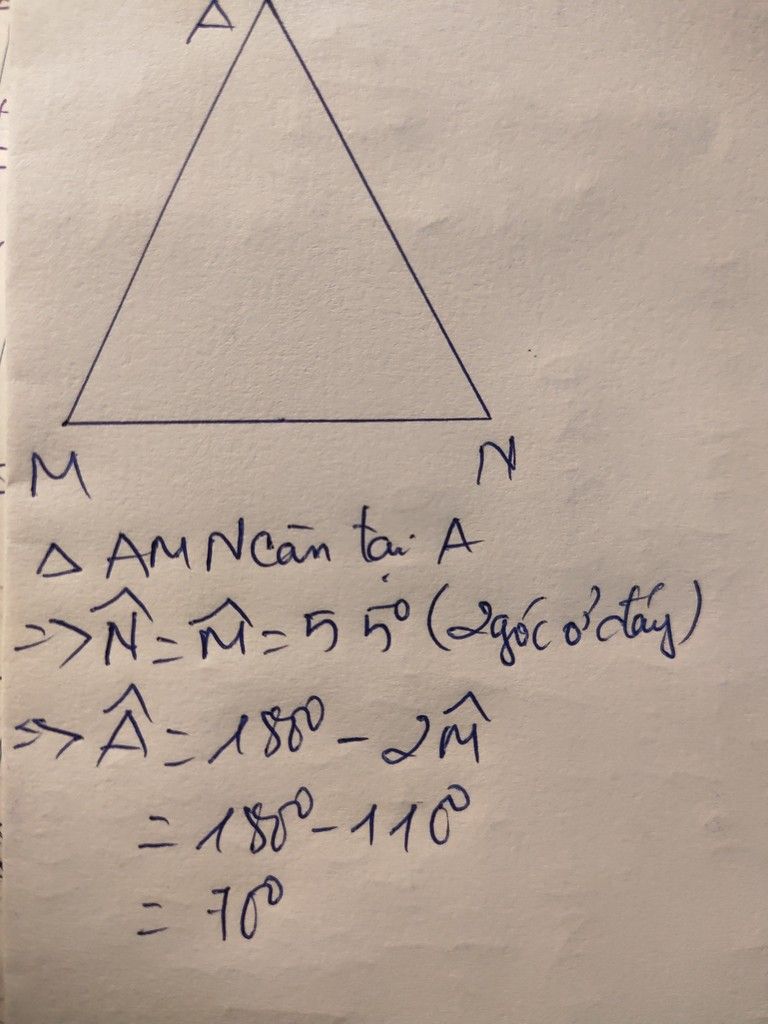 A
M N
Δ AMN cân tại A
=> N̂ = M̂ = 55⁰ (2 góc ở đáy)
=> Â = 180⁰ - 2M̂
= 180⁰ - 110⁰
= 70⁰